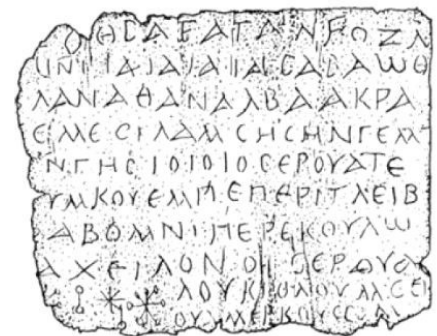 ΟΗϹΑΓΑΤΑΝΒΩΖΛ
ΙΑΙΑΙΑΙΑϹΑϹΑΩΘ
ΛΑΝΑΘΑΝΑΛΒΑΑΚΡΑ
ΕΜΕϹΙΛΑΜϹΗϹΗΝΓΕΜ
ΝΓΗϹΙΟΙΟΙΟϹΕΡΟΥΑΤΕ
ΥΜΚΟΥΕΜΠΕΠΕΡΙΤΛΕΙΒ
ΑΒΟΜΝΙΠΕΡΕΚΟΥΛΩ
ΑΧΕΙΛΟΝΟ ϹΕΡΩΥΟΥ
ΛΟΥΚΙΟΛΟΥΜϹΕΙ
ΟΥΜΕΡΚΟΥϹ